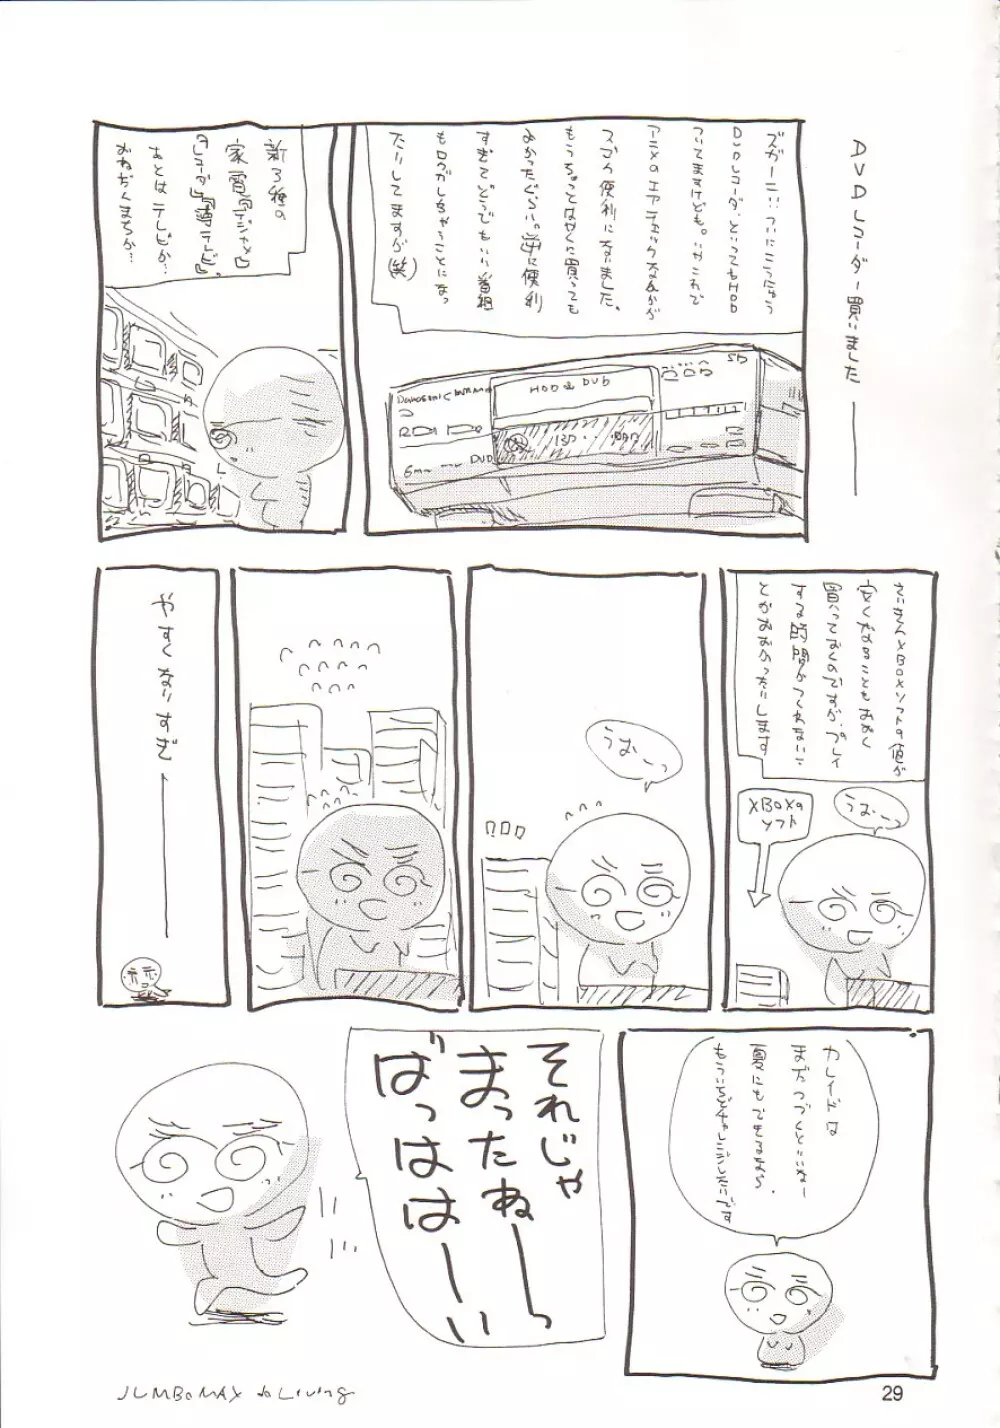 DVDレコーダー買いました――
ズガーン!!ついにこうにゅう
DVDレコーダ、といってもHDD
ついてますけども。いやこれで
アニメのエアチェックなんかが
スゴク便利になりました。
もうちょっとはやくに買っても
よかったぐらい。逆に便利
すぎてどうでもいい番組
もロクガしちゃうことになっ
たりしてますが(笑)
HDD & DVD
SD
DVD
新3種の
家電『デジカメ』
『レコーダ』『薄テレビ』。
あとはテレビか…
おねだんまちか…
さいきんXBOXソフトの値が
安くなることもおおく
買っておくのですが、プレイ
する時間がつくれないこ
とがおおかったりします
うおーっ
XBOXの
ソフト
うおーっ
やすくなりすぎ――
カレイドは
まだつづくといいねー
夏にもできるなら、
もういちどチャレンジしたいです
それじゃ
まったねーっ
ばっはは―い
JUMBOMAX to Living
29